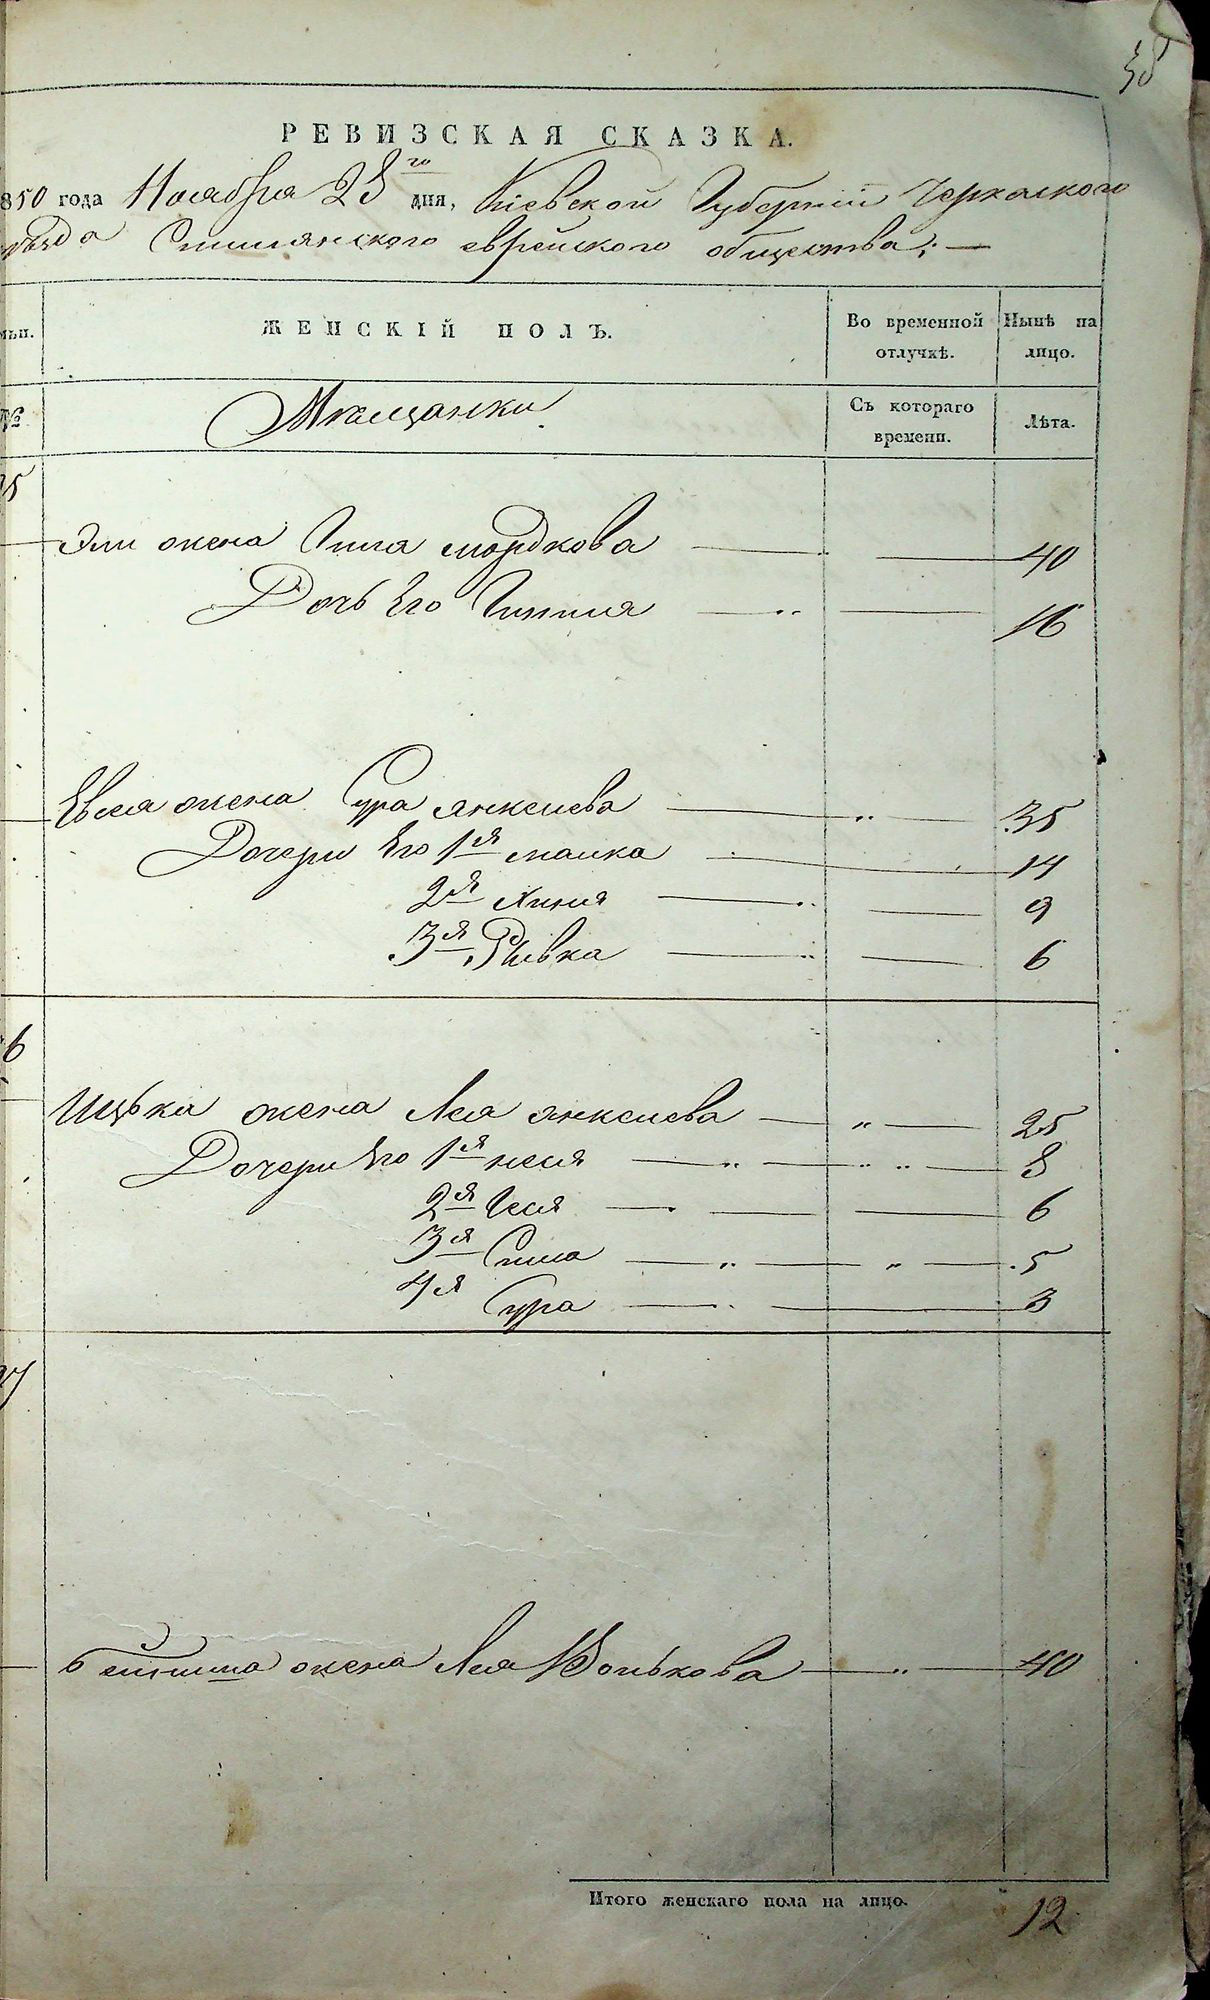 38
РЕВИЗСКАЯ СКАЗКА.
850 года Ноября 23го дня, Кіевской Губерніи Черкаского
уѣзда Смилянского еврейского общества; —
ЖЕНСКІЙ ПОЛЪ.
Во временной отлучкѣ.
Нынѣ на лицо.
№
Мѣщанки
Съ котораго времени.
Лѣта.
25
Эли жена Гита мордкова — — 40
Дочь Его — — 16
Евсея жена Сура янкелева — „ — 35
Дочери Его 1я малка — — 14
2я Хиня — — 9
3я Ривка — — 6
6
Ицька жена Лея янкелева — „ — 25
Дочери Его 1я неся — „ — „ — 8
2я Геся — — 6
3я Сима — „ — „ — 5
4я Сура — — 3
27
жена Лея Волькова — „ — 40
Итого женскаго пола на лицо. 12